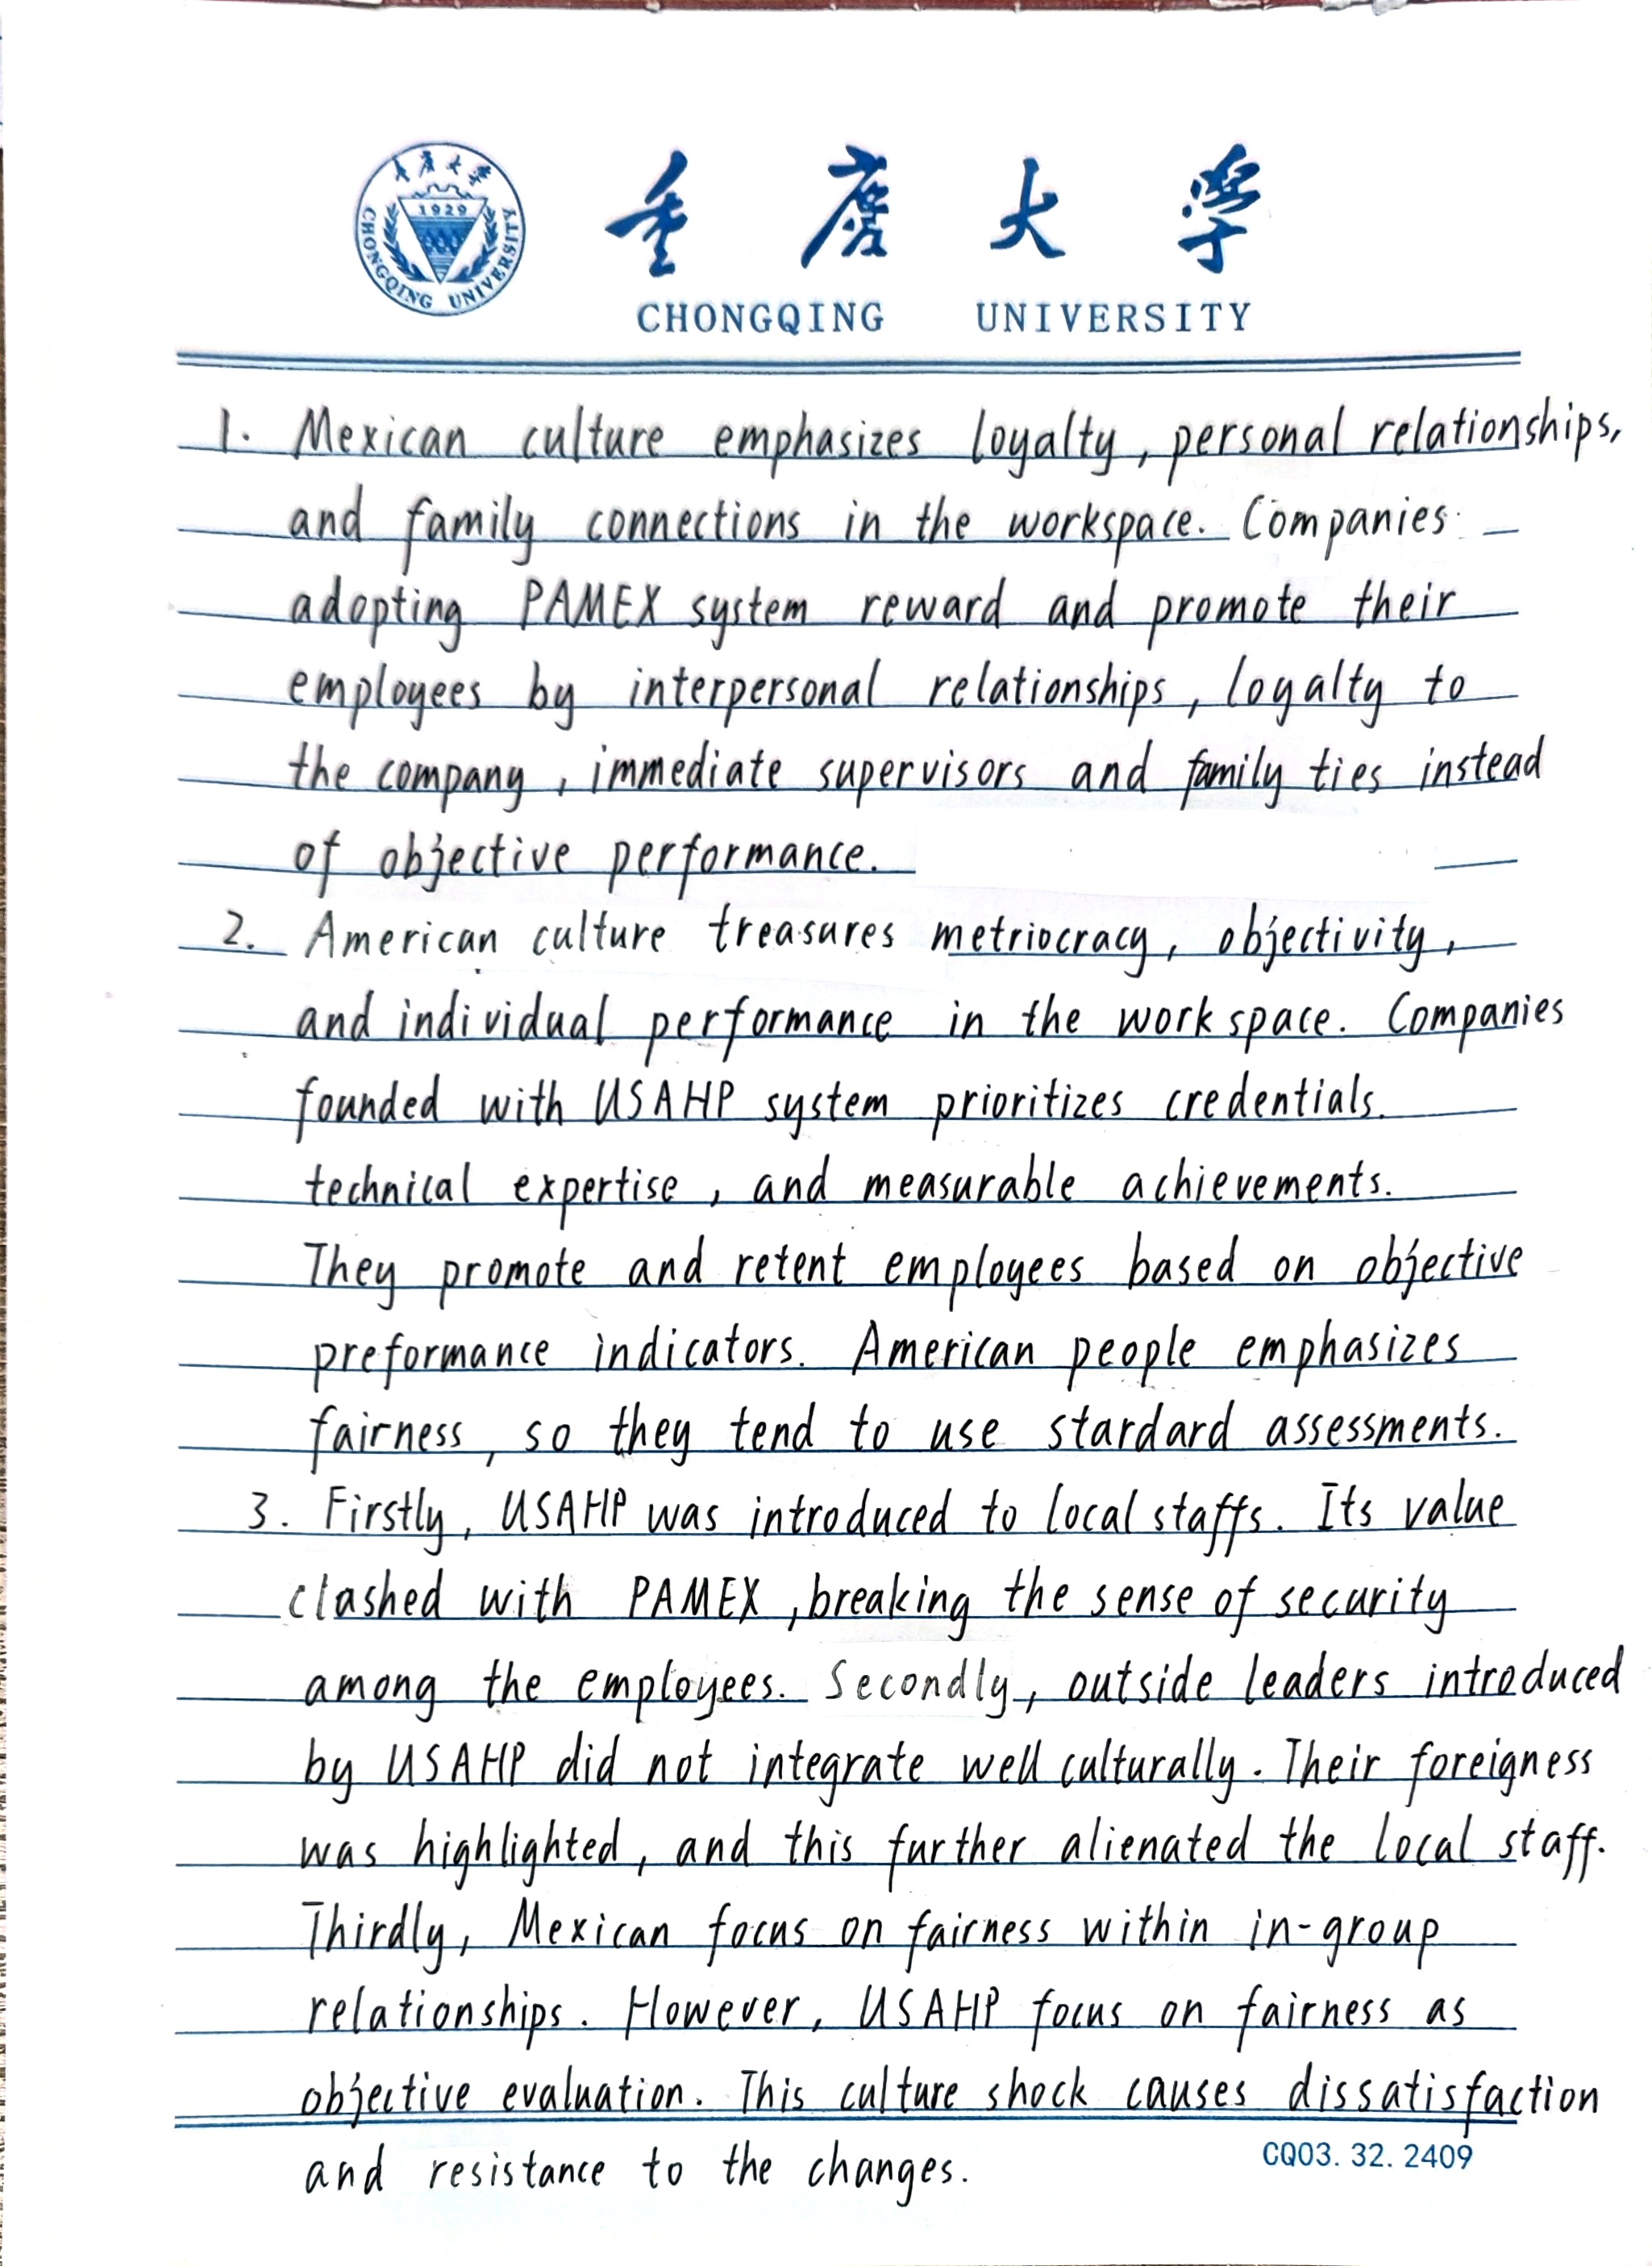 重庆大学
1929
CHONGQING UNIVERSITY
重庆大学
CHONGQING UNIVERSITY
1. Mexican culture emphasizes loyalty, personal relationships,
and family connections in the workspace. Companies
adopting PAMEX system reward and promote their
employees by interpersonal relationships, loyalty to
the company, immediate supervisors and family ties instead
of objective performance.
2. American culture treasures metriocracy, objectivity,
and individual performance in the workspace. Companies
founded with USAHP system prioritizes credentials.
technical expertise, and measurable achievements.
They promote and retent employees based on objective
preformance indicators. American people emphasizes
fairness, so they tend to use stardard assessments.
3. Firstly, USAHP was introduced to local staffs. Its value
clashed with PAMEX, breaking the sense of security
among the employees. Secondly, outside leaders introduced
by USAHP did not integrate well culturally. Their foreigness
was highlighted, and this further alienated the local staff.
Thirdly, Mexican focus on fairness within in-group
relationships. However, USAHP focus on fairness as
objective evaluation. This culture shock causes dissatisfaction
and resistance to the changes.
CQ03. 32. 2409